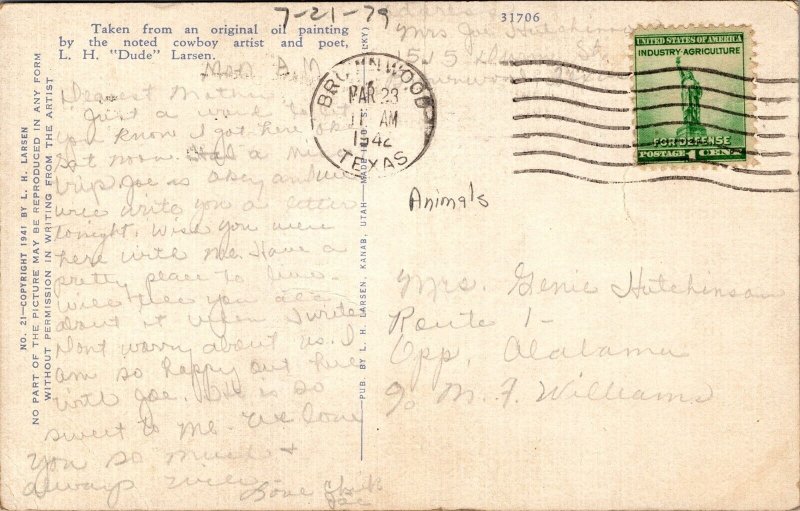 7-21-79
31706
Taken from an original oil painting
by the noted cowboy artist and poet,
L. H. "Dude" Larsen.
Mrs Joe Hutchinson
Mon
Dearest Mother,
Just a word to let
you know I got here
Sat noon. Had a nice
trip. Joe is okay and we
will write you a letter
tonight. Wish you were
here with me. Have a
pretty place to live.
will tell you all
about it when I write
Dont worry about us. I
am so happy out here
with Joe. He is so
sweet to me. We love
you so much &
always will.
Love
Joe
BROWNWOOD
MAR 23
11 AM
1942
TEXAS
UNITED STATES OF AMERICA
INDUSTRY-AGRICULTURE
FOR DEFENSE
POSTAGE 1 CENT
Animals
Mrs. Genie Hutchinson
Route 1-
Opp, Alabama
% M. F. Williams
NO. 21—COPYRIGHT 1941 BY L. H. LARSEN
NO PART OF THE PICTURE MAY BE REPRODUCED IN ANY FORM
WITHOUT PERMISSION IN WRITING FROM THE ARTIST
PUB. BY L. H. LARSEN, KANAB, UTAH—MADE